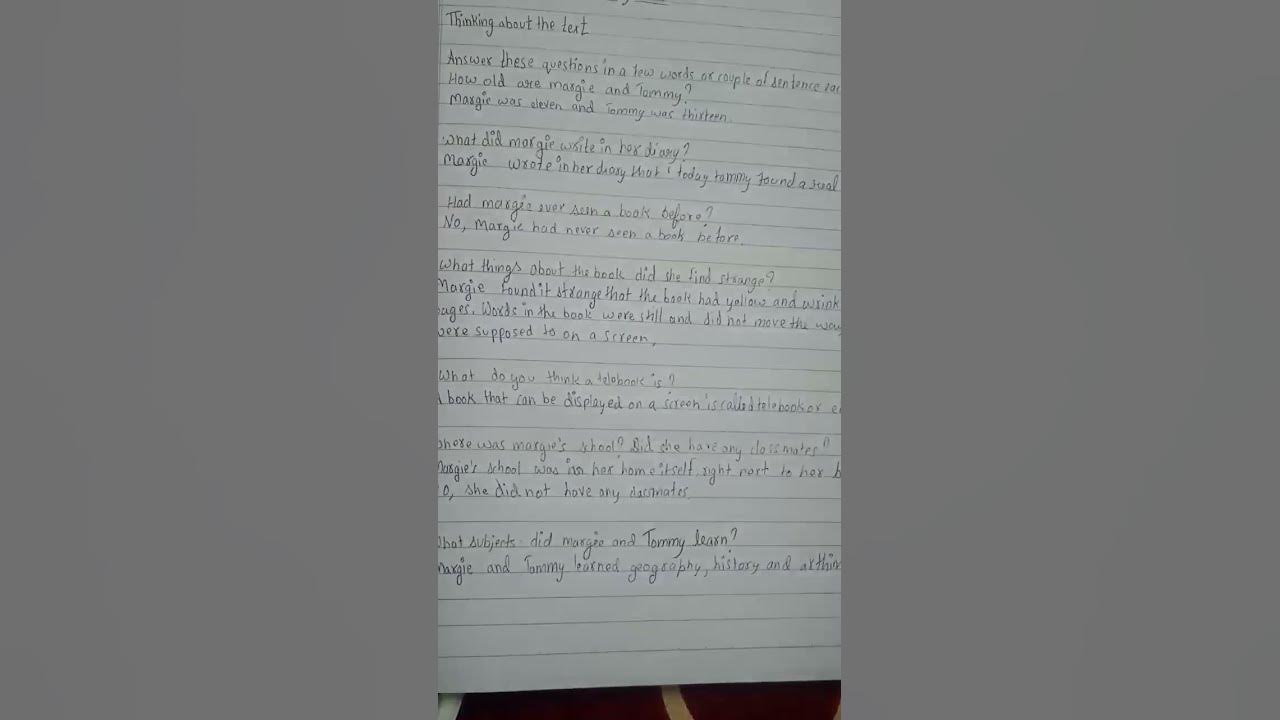 Thinking about the text
Answer these questions in a few words or couple of sentence eac
How old are margie and Tommy?
Margie was eleven and Tommy was thirteen.
What did margie write in her diary?
Margie wrote in her diary that 'today tommy found a real
Had margie ever seen a book before?
No, Margie had never seen a book before.
What things about the book did she find strange?
Margie found it strange that the book had yellow and wrink
pages. Words in the book were still and did not move the way
were supposed to on a screen,
What do you think a telebook is?
book that can be displayed on a screen is called telebook or e
where was margie's school? Did she have any classmates?
Margie's school was in her home itself, right next to her b
o, she did not have any classmates.
What subjects did margie and Tommy learn?
Margie and Tommy learned geography, history and arthim